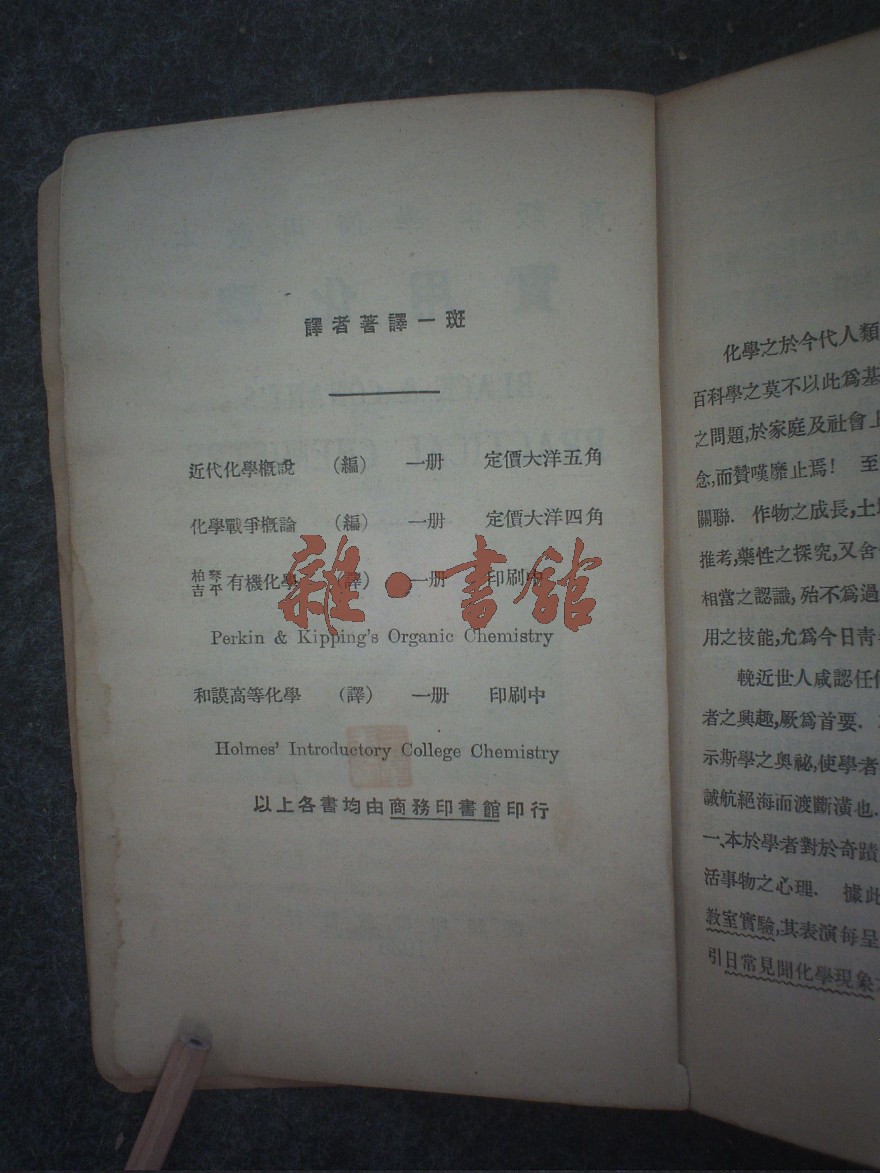 譯者著譯一斑
近代化學概說 (編) 一册 定價大洋五角
化學戰爭概論 (編) 一册 定價大洋四角
柏琴吉平有機化學 (譯) 一册 印刷中
Perkin & Kipping's Organic Chemistry
和謨高等化學 (譯) 一册 印刷中
Holmes' Introductory College Chemistry
以上各書均由商務印書館印行
雜·書館
化學之於今代人類
百科學之莫不以此爲基
之問題,於家庭及社會上
念,而贊嘆靡止焉! 至
關聯. 作物之成長,土
推考,藥性之探究,又舍
相當之認識,殆不爲過
用之技能,允爲今日靑
輓近世人咸認任何
者之興趣,厥爲首要.
示斯學之奧祕,使學者
誠航絕海而渡斷潢也.
一、本於學者對於奇蹟
活事物之心理. 據此
教室實驗,其表演每呈
引日常見聞化學現象